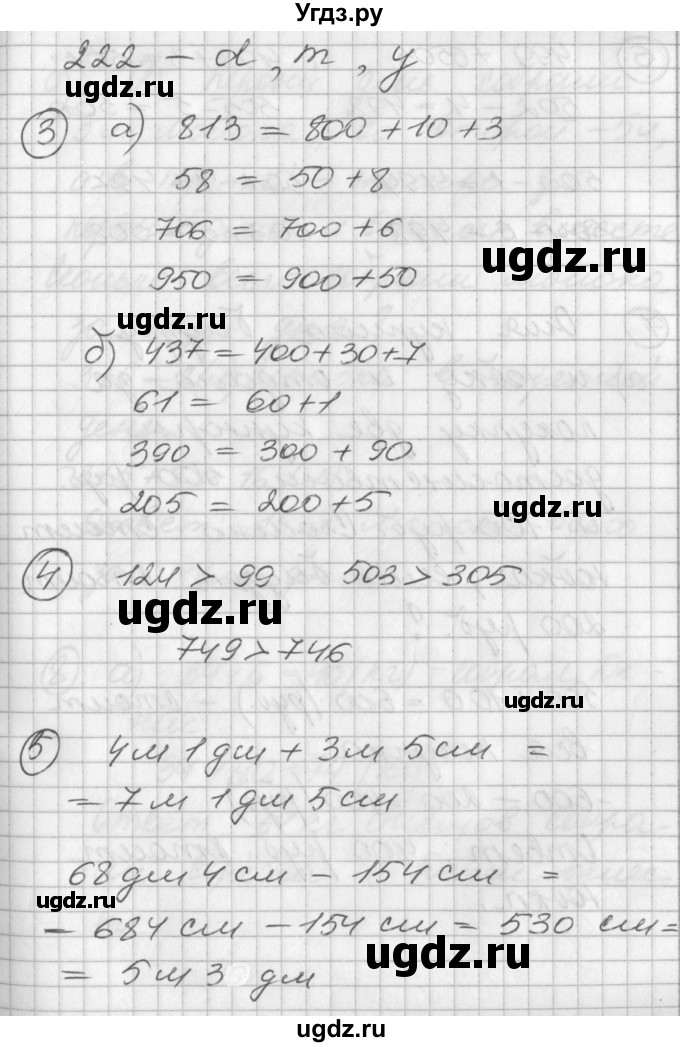 Угдз.ру
222 - d, m, y
ugdz.ru
③ а) 813 = 800 + 10 + 3
58 = 50 + 8
706 = 700 + 6
ugdz.ru
950 = 900 + 50
ugdz.ru
б) 437 = 400 + 30 + 7
61 = 60 + 1
390 = 300 + 90
205 = 200 + 5
ugdz.ru
④ 124 > 99 503 > 305
ugdz.ru
749 > 746
ugdz.ru
⑤ 4м 1дм + 3м 5см =
= 7м 1дм 5см
68дм 4см - 154см =
ugdz.ru
- 684см - 154см = 530 см =
ugdz.ru
= 5м 3 дм
ugdz.ru